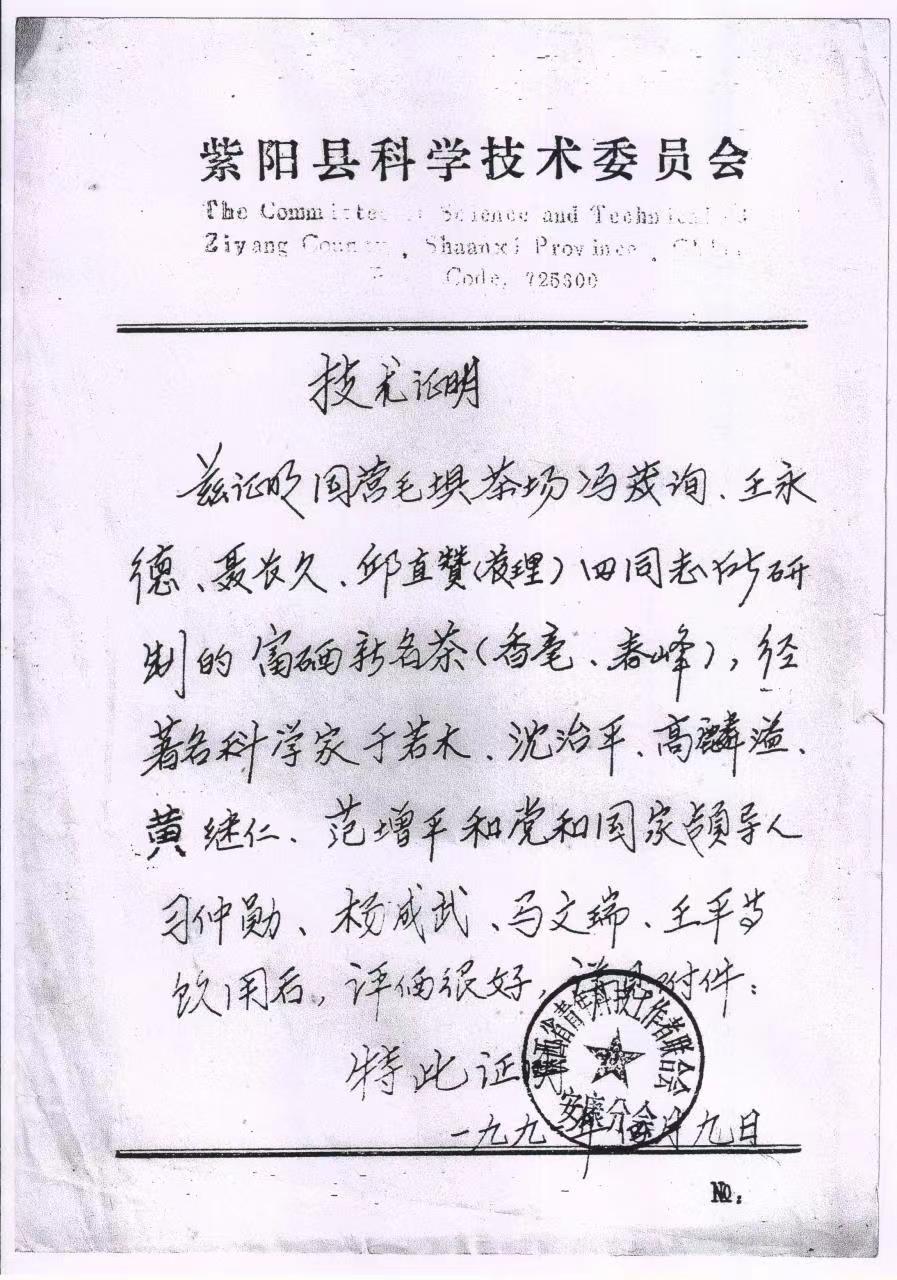 紫阳县科学技术委员会
The Committee Science and Technical
Ziyang County, Shaanxi Province, China
Code, 725300
技术证明
兹证明国营毛坝茶场冯茂询、王永
德、聂长久、邱直赞(整理)四同志所研
制的富硒新名茶(香毫、春峰),经
著名科学家于若木、沈治平、高麟溢、
黄继仁、范增平和党和国家领导人
习仲勋、杨成武、马文瑞、王平等
饮用后,评价很好,详见附件:
特此证
陕西省青年科技工作者联合会
安康分会
一九九 年 月九日
№: